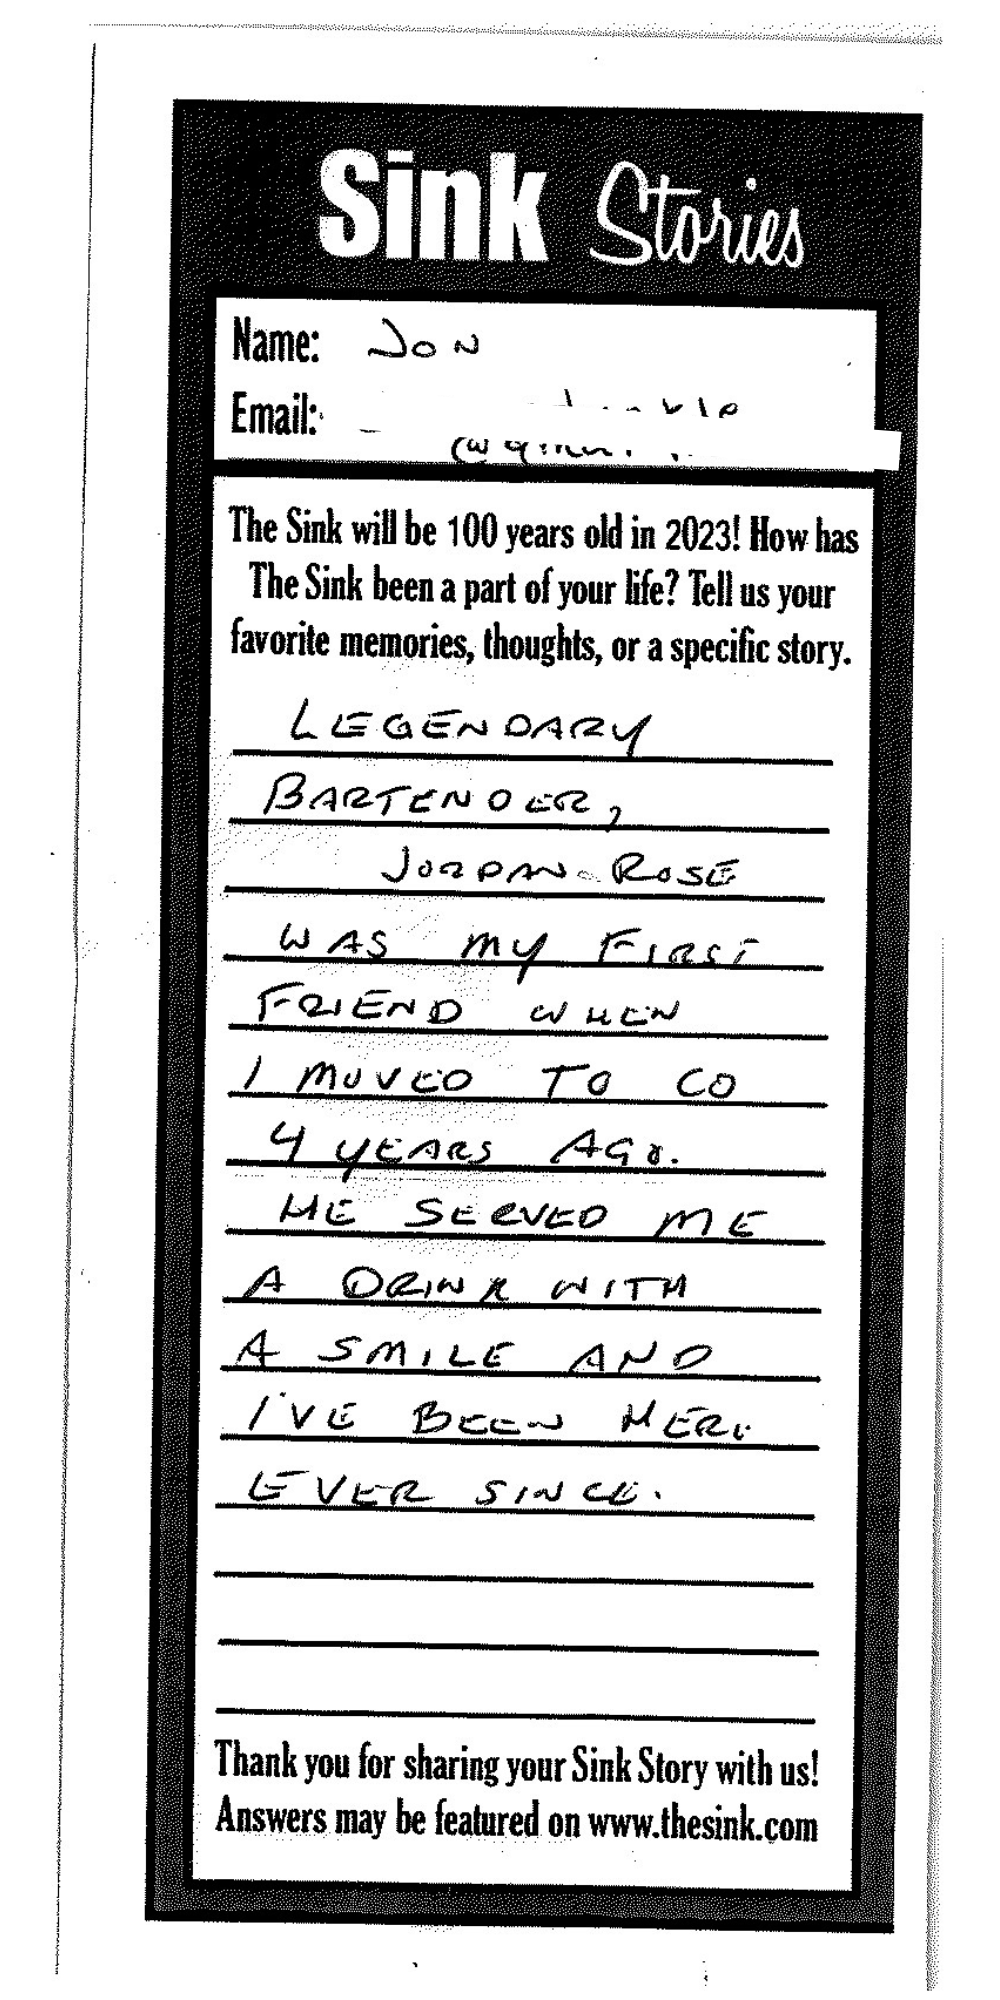 Sink Stories
Name: JON
Email:
The Sink will be 100 years old in 2023! How has
The Sink been a part of your life? Tell us your
favorite memories, thoughts, or a specific story.
LEGENDARY
BARTENDER,
JORDAN ROSE
WAS MY FIRST
FRIEND WHEN
I MOVED TO CO
4 YEARS AGO.
HE SERVED ME
A DRINK WITH
A SMILE AND
I'VE BEEN HERE
EVER SINCE.
Thank you for sharing your Sink Story with us!
Answers may be featured on www.thesink.com